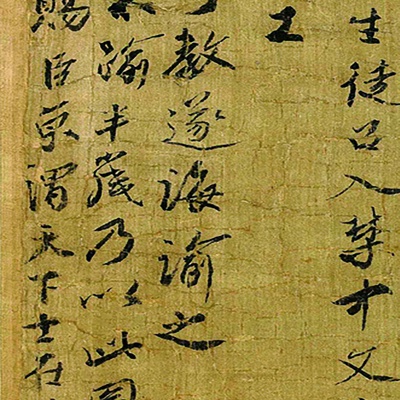 生徒召入禁中文
工
教遂誨諭之
踰半歲乃以此圖
賜臣京謂天下士在